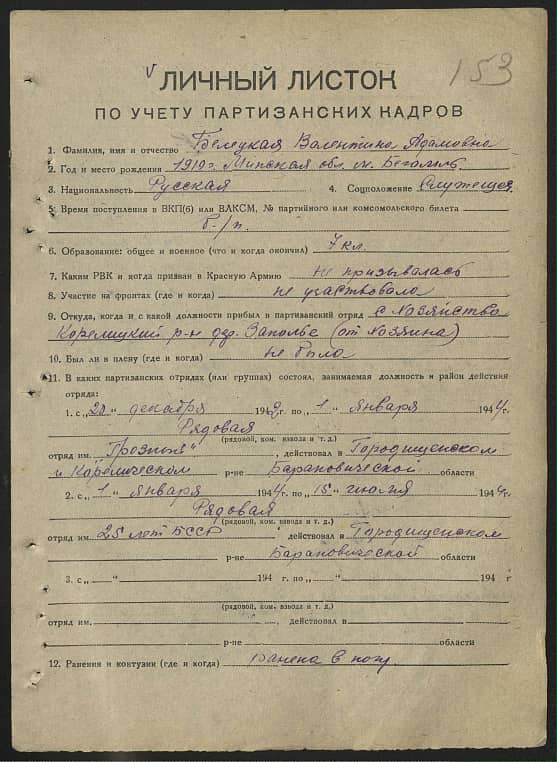 153
ЛИЧНЫЙ ЛИСТОК
ПО УЧЕТУ ПАРТИЗАНСКИХ КАДРОВ
1. Фамилия, имя и отчество Белецкая Валентина Адамовна
2. Год и место рождения 1919 г. Минская обл. м. Бегомль
3. Национальность Русская 4. Соцположение Служащая
5. Время поступления в ВКП(б) или ВЛКСМ, № партийного или комсомольского билета
б/п.
6. Образование: общее и военное (что и когда окончил) 7 кл.
7. Каким РВК и когда призван в Красную Армию не призывалась
8. Участие на фронтах (где и когда) не участвовала
9. Откуда, когда и с какой должности прибыл в партизанский отряд с хозяйства
Корелицкий р-н дер. Заполье (от хозяина)
10. Был ли в плену (где и когда) не была
11. В каких партизанских отрядах (или группах) состоял, занимаемая должность и район действия
отряда:
1. с „20“ декабря 194 г. по „1“ января 1944 г.
Рядовая
(рядовой, ком. взвода и т. д.)
отряд им. , действовал в Городищенском
и Кореличском р-не Барановической области
2. с „1“ января 1944 г. по „15“ июля 1944 г.
Рядовая
(рядовой, ком. взвода и т. д.)
отряд им. 25 лет БССР действовал в Городищенском
р-не Барановической области
3. с „ “ 194 г. по „ “ 194 г
(рядовой, ком. взвода и т. д.)
отряд им. , действовал в
р-не области
12. Ранения и контузии (где и когда) Ранена в ногу